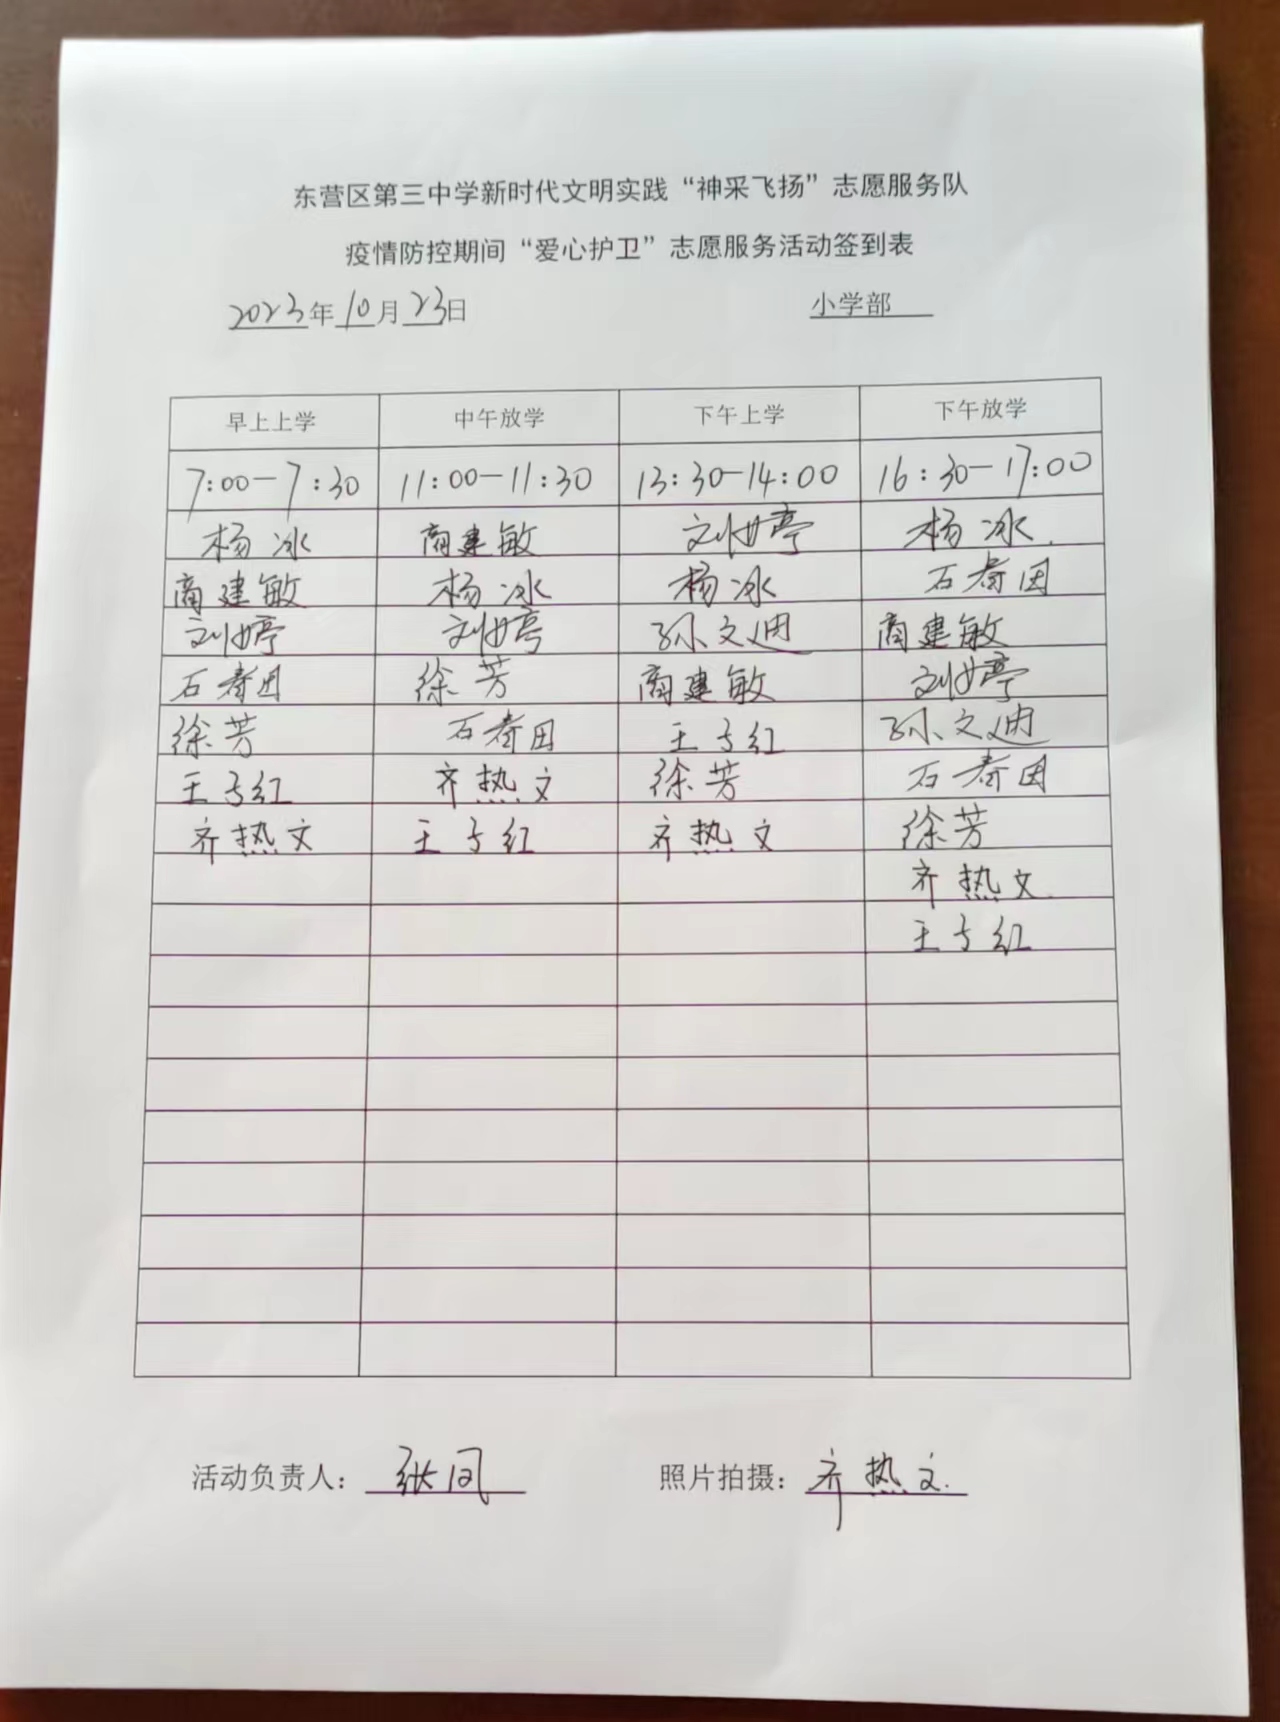 东营区第三中学新时代文明实践“神采飞扬”志愿服务队
疫情防控期间“爱心护卫”志愿服务活动签到表
2023年10月23日 小学部
早上上学 中午放学 下午上学 下午放学
7:00-7:30 11:00-11:30 13:30-14:00 16:30-17:00
杨冰 商建敏 刘婷 杨冰
商建敏 杨冰 杨冰 石春田
刘婷 刘婷 孙文迪 商建敏
石春田 徐芳 商建敏 刘婷
徐芳 石春田 王红 孙文迪
王红 齐热文 徐芳 石春田
齐热文 王红 齐热文 徐芳
齐热文
王红
活动负责人：张凤 照片拍摄：齐热文